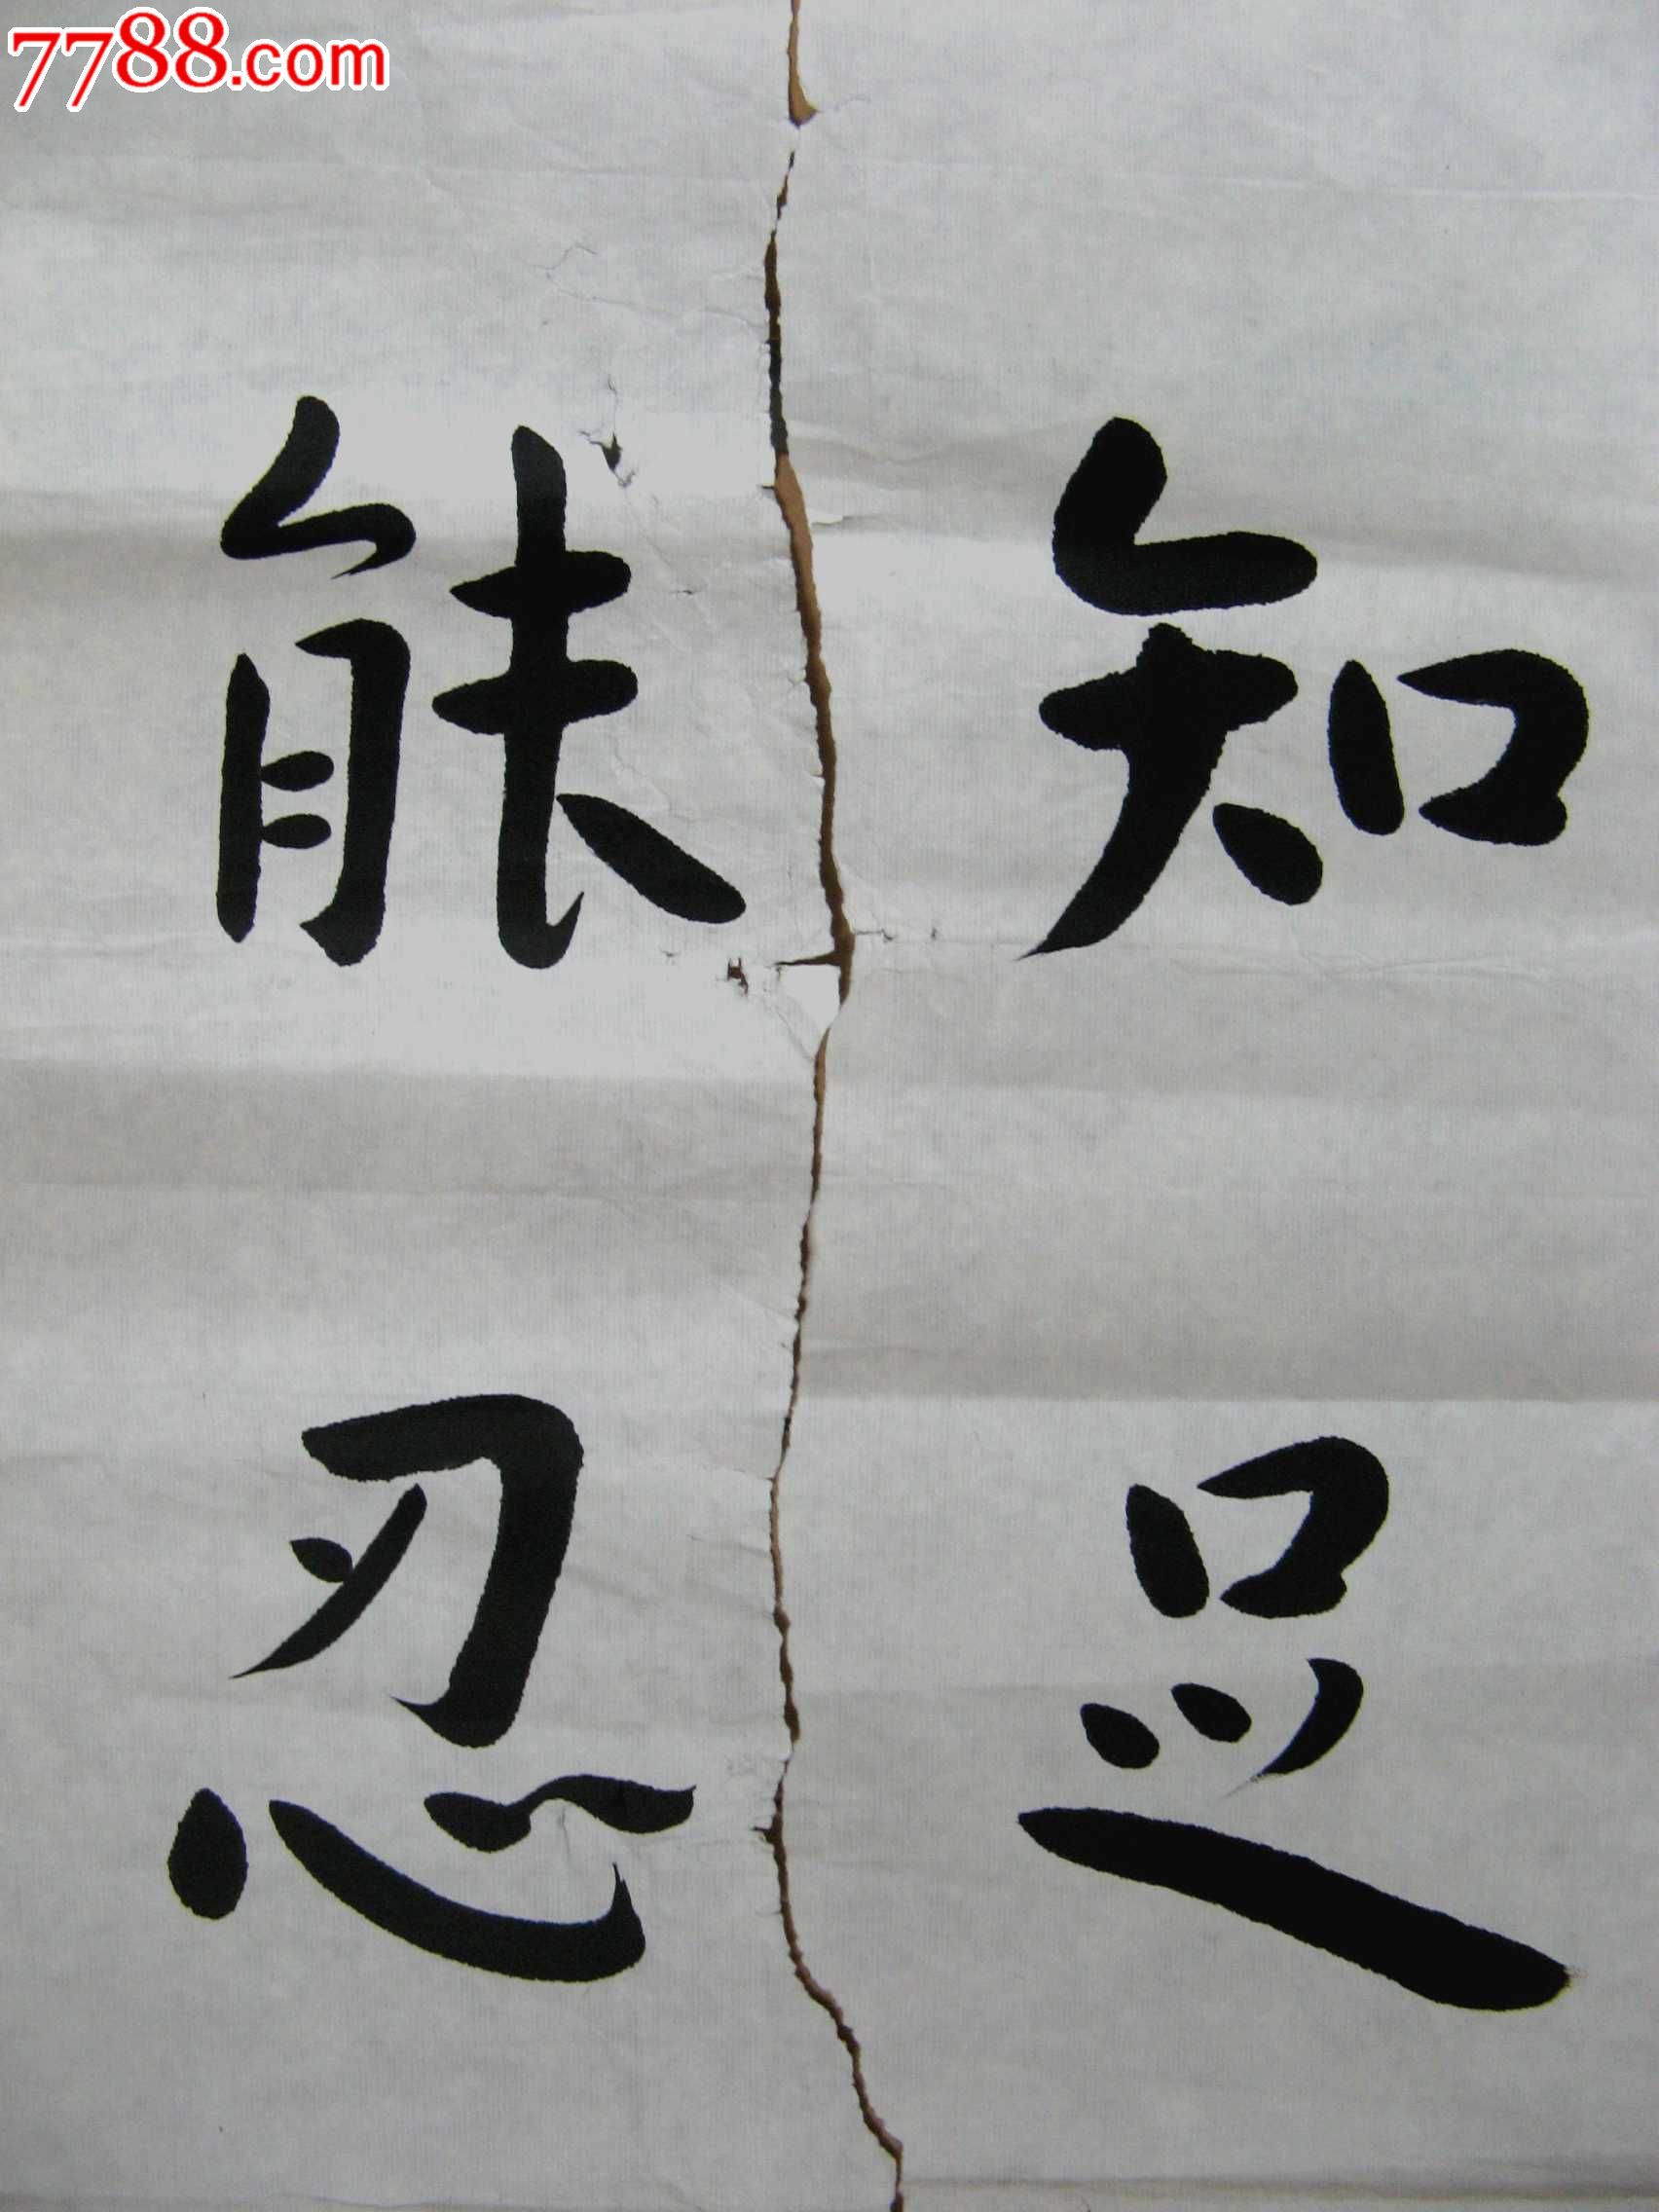 7788.com
知足
能忍